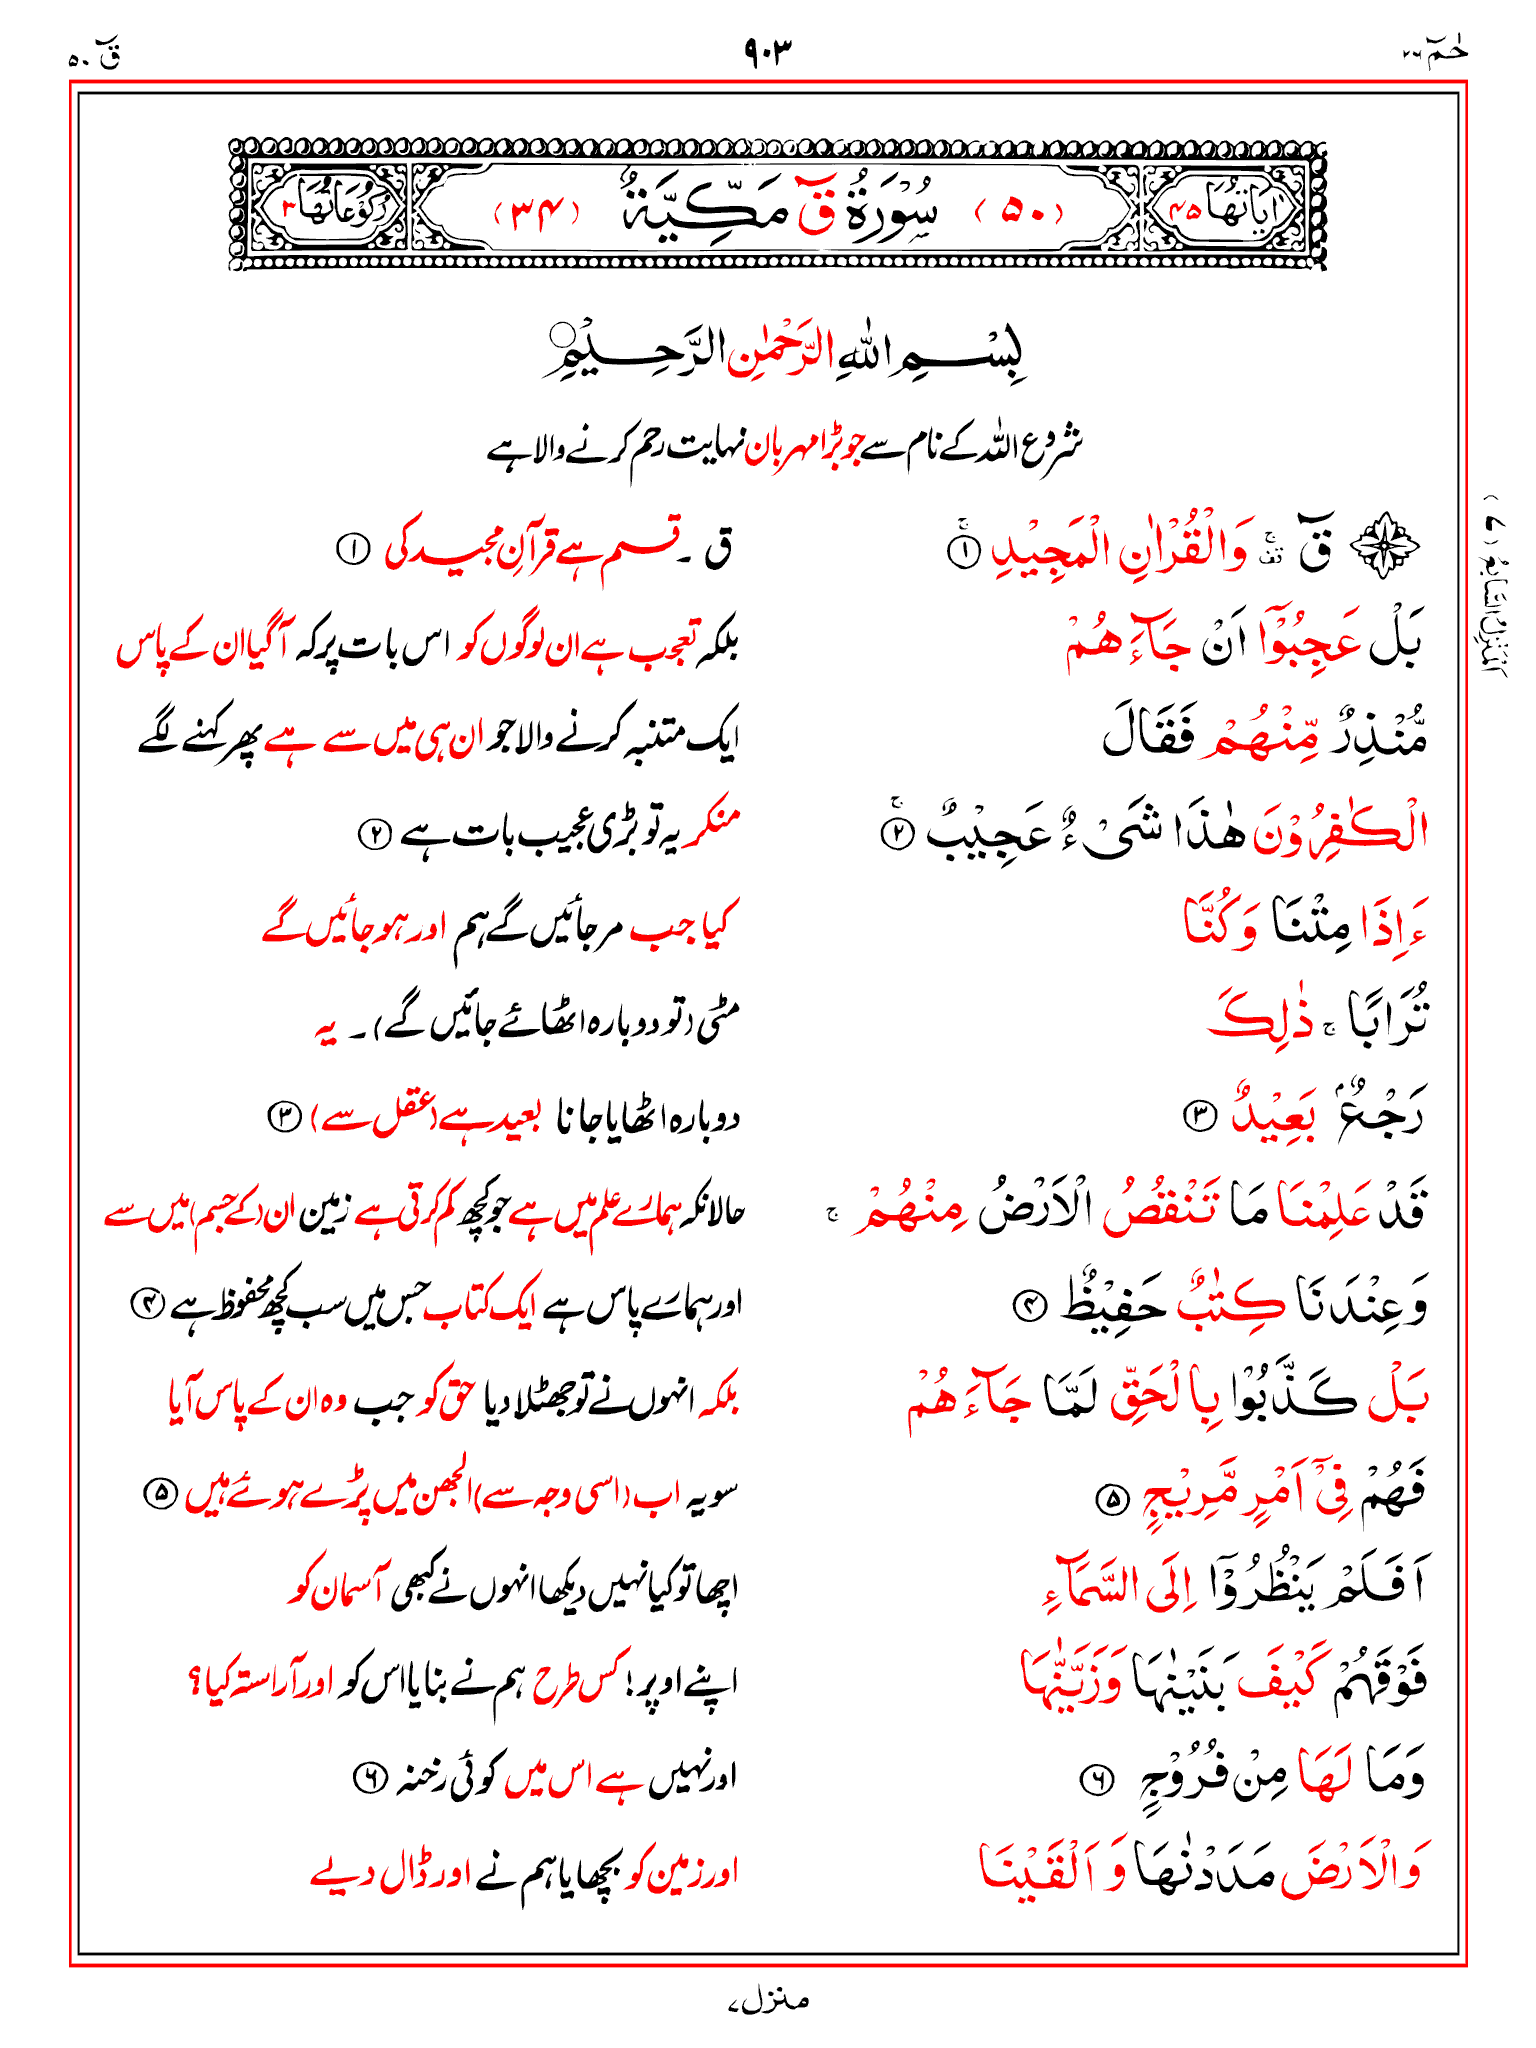 حٰمٓ ۲۶ ۹۰۳ قٓ ۵۰
اٰیَاتُهَا ۴۵ (۵۰) سُوْرَةُ قٓ مَكِّیَّةٌ (۳۴) رُكُوْعَاتُهَا ۳
بِسْمِ اللّٰهِ الرَّحْمٰنِ الرَّحِیْمِ
شروع اللہ کے نام سے جو بڑا مہربان نہایت رحم کرنے والا ہے
قٓ ۚ وَالْقُرْاٰنِ الْمَجِیْدِ ۚ ۱ ق ۔ قسم ہے قرآنِ مجید کی ۱
بَلْ عَجِبُوْۤا اَنْ جَآءَهُمْ بلکہ تعجب ہے ان لوگوں کو اس بات پر کہ آگیا ان کے پاس
مُّنْذِرٌ مِّنْهُمْ فَقَالَ ایک متنبہ کرنے والا جو ان ہی میں سے ہے پھر کہنے لگے
الْكٰفِرُوْنَ هٰذَا شَیْءٌ عَجِیْبٌ ۚ ۲ منکر یہ تو بڑی عجیب بات ہے ۲
ءَاِذَا مِتْنَا وَكُنَّا کیا جب مرجائیں گے ہم اور ہوجائیں گے
تُرَابًا ۚ ذٰلِكَ مٹی (تو دوبارہ اٹھائے جائیں گے)۔ یہ
رَجْعٌۢ بَعِیْدٌ ۳ دوبارہ اٹھایا جانا بعید ہے (عقل سے) ۳
قَدْ عَلِمْنَا مَا تَنْقُصُ الْاَرْضُ مِنْهُمْ ۚ حالانکہ ہمارے علم میں ہے جو کچھ کم کرتی ہے زمین ان (کے جسم) میں سے
وَعِنْدَنَا كِتٰبٌ حَفِیْظٌ ۴ اور ہمارے پاس ہے ایک کتاب جس میں سب کچھ محفوظ ہے ۴
بَلْ كَذَّبُوْا بِالْحَقِّ لَمَّا جَآءَهُمْ بلکہ انہوں نے تو جھٹلا دیا حق کو جب وہ ان کے پاس آیا
فَهُمْ فِیْۤ اَمْرٍ مَّرِیْجٍ ۵ سو یہ اب (اسی وجہ سے) الجھن میں پڑے ہوئے ہیں ۵
اَفَلَمْ یَنْظُرُوْۤا اِلَی السَّمَآءِ اچھا تو کیا نہیں دیکھا انہوں نے کبھی آسمان کو
فَوْقَهُمْ كَیْفَ بَنَیْنٰهَا وَزَیَّنّٰهَا اپنے اوپر! کس طرح ہم نے بنایا اس کو اور آراستہ کیا؟
وَمَا لَهَا مِنْ فُرُوْجٍ ۶ اور نہیں ہے اس میں کوئی رخنہ ۶
وَالْاَرْضَ مَدَدْنٰهَا وَاَلْقَیْنَا اور زمین کو بچھایا ہم نے اور ڈال دیے
اَلْمَنْزِلُ السَّابِعُ (۷)
منزل ۷